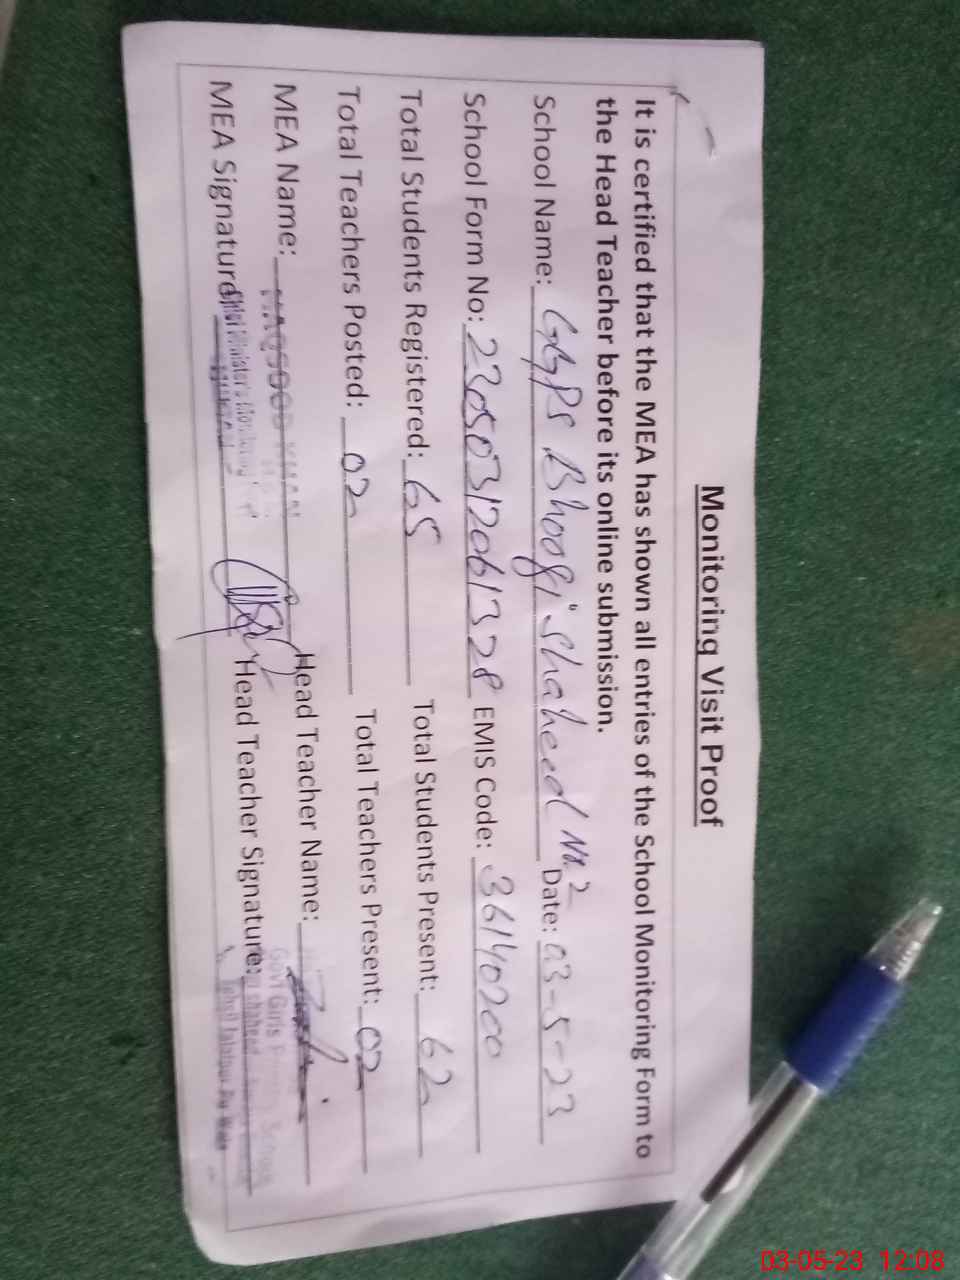 Monitoring Visit Proof
It is certified that the MEA has shown all entries of the School Monitoring Form to
the Head Teacher before its online submission.
School Name: GGPS Bhoogi Shaheed No.2 Date: 03-5-23
School Form No: 23050312061328 EMIS Code: 36140200
Total Students Registered: 65 Total Students Present: 62
Total Teachers Posted: 02 Total Teachers Present: 02
MEA Name: MAQSOOD Head Teacher Name:
MEA Signature: Chief Minister's Monitoring Head Teacher Signature:
Govt Girls School
shaheed
Tehsil Jalalpur Pir Wala
03-05-23 12:08